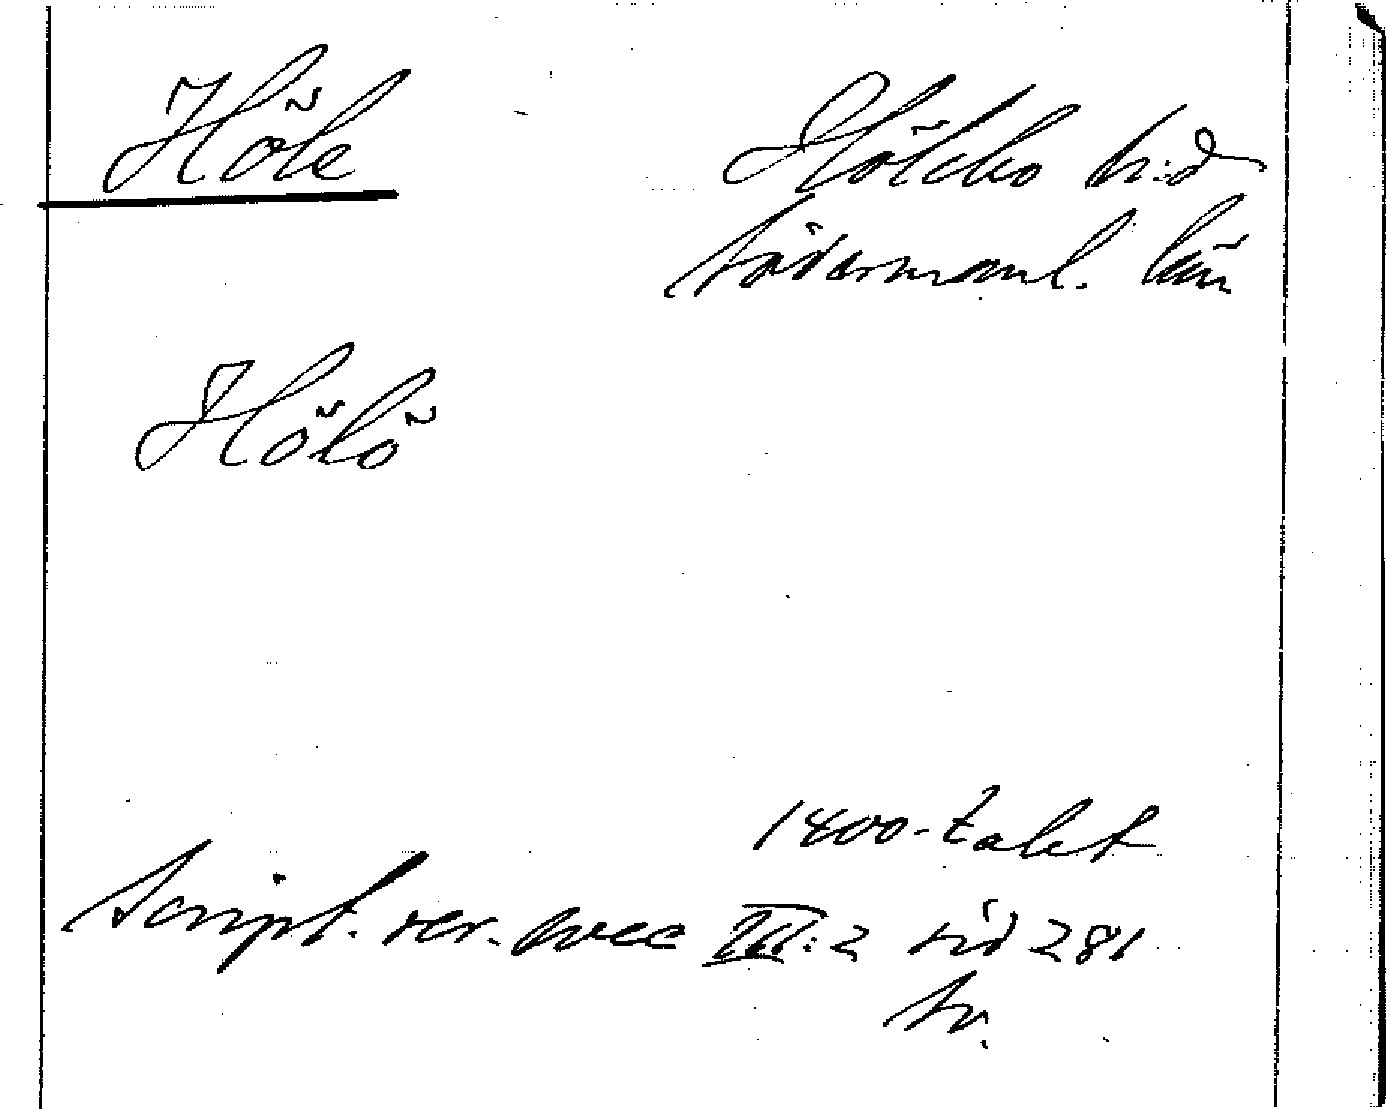 Höle
Hölebo h:d
södermanl. län
Hölö
1400-talet
Script. rer. svec III:2 sid 281
Sv.